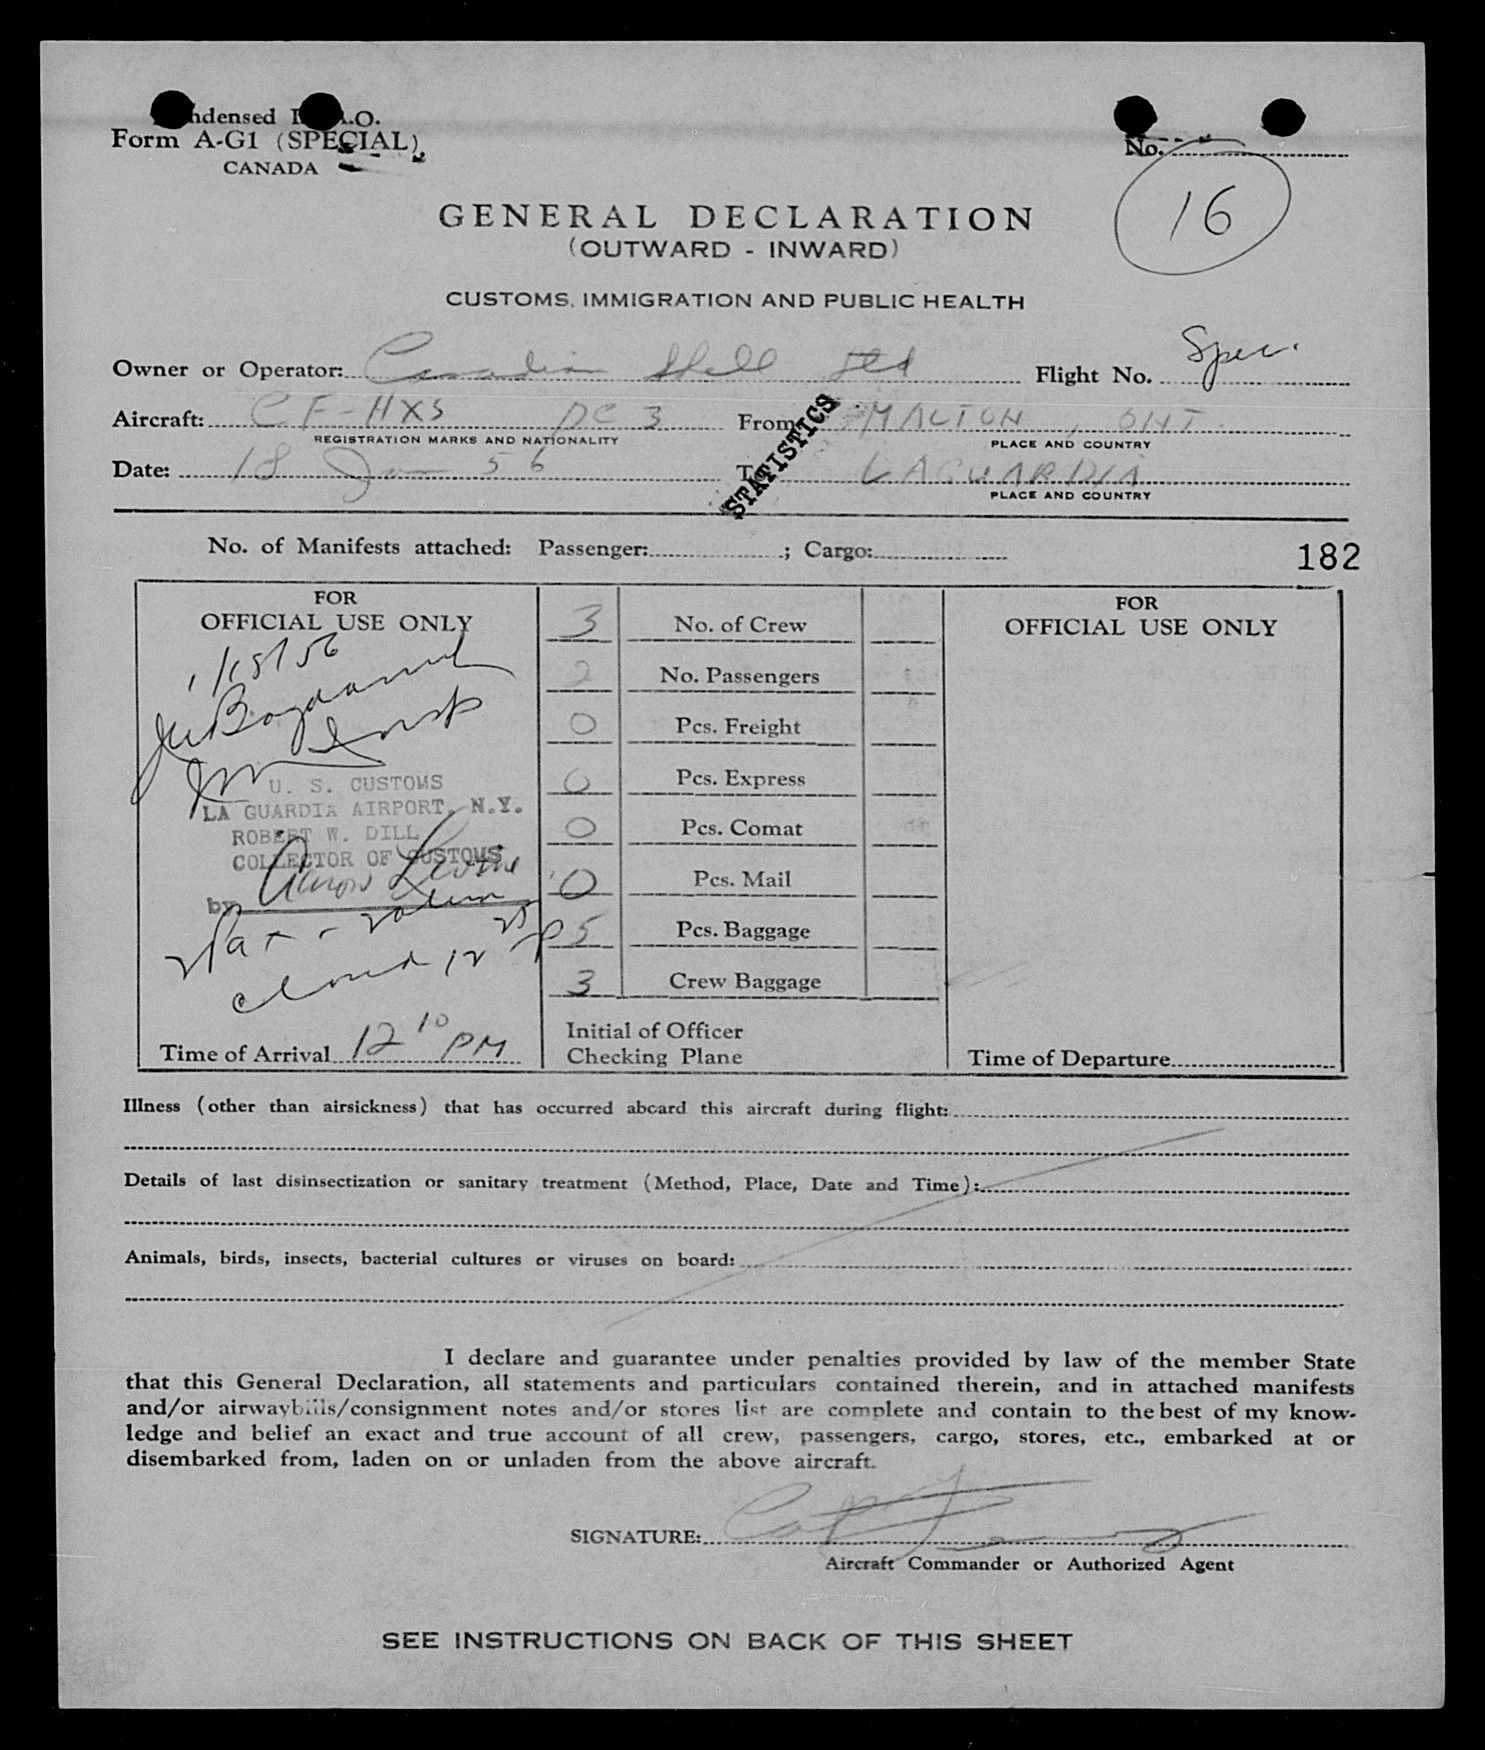 Condensed I.C.A.O.
Form A-G1 (SPECIAL)
CANADA
No.
16
GENERAL DECLARATION
(OUTWARD - INWARD)
CUSTOMS, IMMIGRATION AND PUBLIC HEALTH
Owner or Operator: Canadian Shell Ltd Flight No. Spec.
Aircraft: CF-HXS DC 3 From MALTON, ONT.
REGISTRATION MARKS AND NATIONALITY PLACE AND COUNTRY
Date: 18 Jan 56 To LAGUARDIA
PLACE AND COUNTRY
STATISTICS
No. of Manifests attached: Passenger: ; Cargo:
182
FOR
OFFICIAL USE ONLY
1/18/56
U. S. CUSTOMS
LA GUARDIA AIRPORT, N.Y.
ROBERT W. DILL
COLLECTOR OF CUSTOMS
by Aaron Levine
Time of Arrival 12 10 PM
3 No. of Crew
2 No. Passengers
0 Pcs. Freight
0 Pcs. Express
0 Pcs. Comat
0 Pcs. Mail
5 Pcs. Baggage
3 Crew Baggage
Initial of Officer
Checking Plane
FOR
OFFICIAL USE ONLY
Time of Departure
Illness (other than airsickness) that has occurred aboard this aircraft during flight:
Details of last disinsectization or sanitary treatment (Method, Place, Date and Time):
Animals, birds, insects, bacterial cultures or viruses on board:
I declare and guarantee under penalties provided by law of the member State
that this General Declaration, all statements and particulars contained therein, and in attached manifests
and/or airwaybills/consignment notes and/or stores list are complete and contain to the best of my know-
ledge and belief an exact and true account of all crew, passengers, cargo, stores, etc., embarked at or
disembarked from, laden on or unladen from the above aircraft.
SIGNATURE:
Aircraft Commander or Authorized Agent
SEE INSTRUCTIONS ON BACK OF THIS SHEET